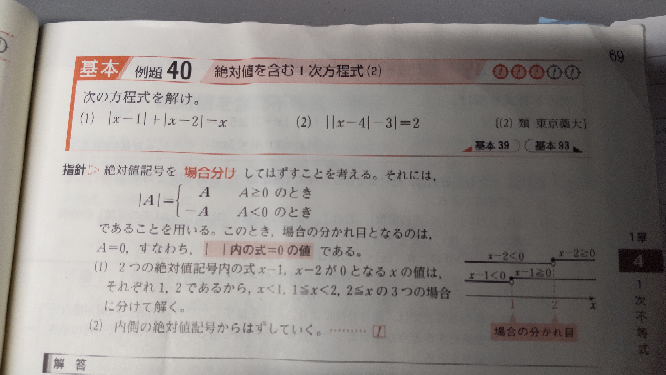 69
基本 例題 40 絶対値を含む1次方程式(2)
次の方程式を解け。
(1) |x−1|+|x−2|=x (2) ||x−4|−3|=2 [(2) 類 東京薬大]
基本 39 基本 93
指針 絶対値記号を 場合分け してはずすことを考える。それには，
|A|={ A A≧0 のとき
−A A<0 のとき
であることを用いる。このとき，場合の分かれ目となるのは，
A=0，すなわち，| |内の式=0の値 である。
(1) 2つの絶対値記号内の式 x−1，x−2 が 0 となる x の値は，
それぞれ 1，2 であるから，x<1，1≦x<2，2≦x の3つの場合
に分けて解く。
(2) 内側の絶対値記号からはずしていく。………
x−2<0 x−2≧0
x−1<0 x−1≧0
1 2 x
場合の分かれ目
1章
4
1次不等式
解答